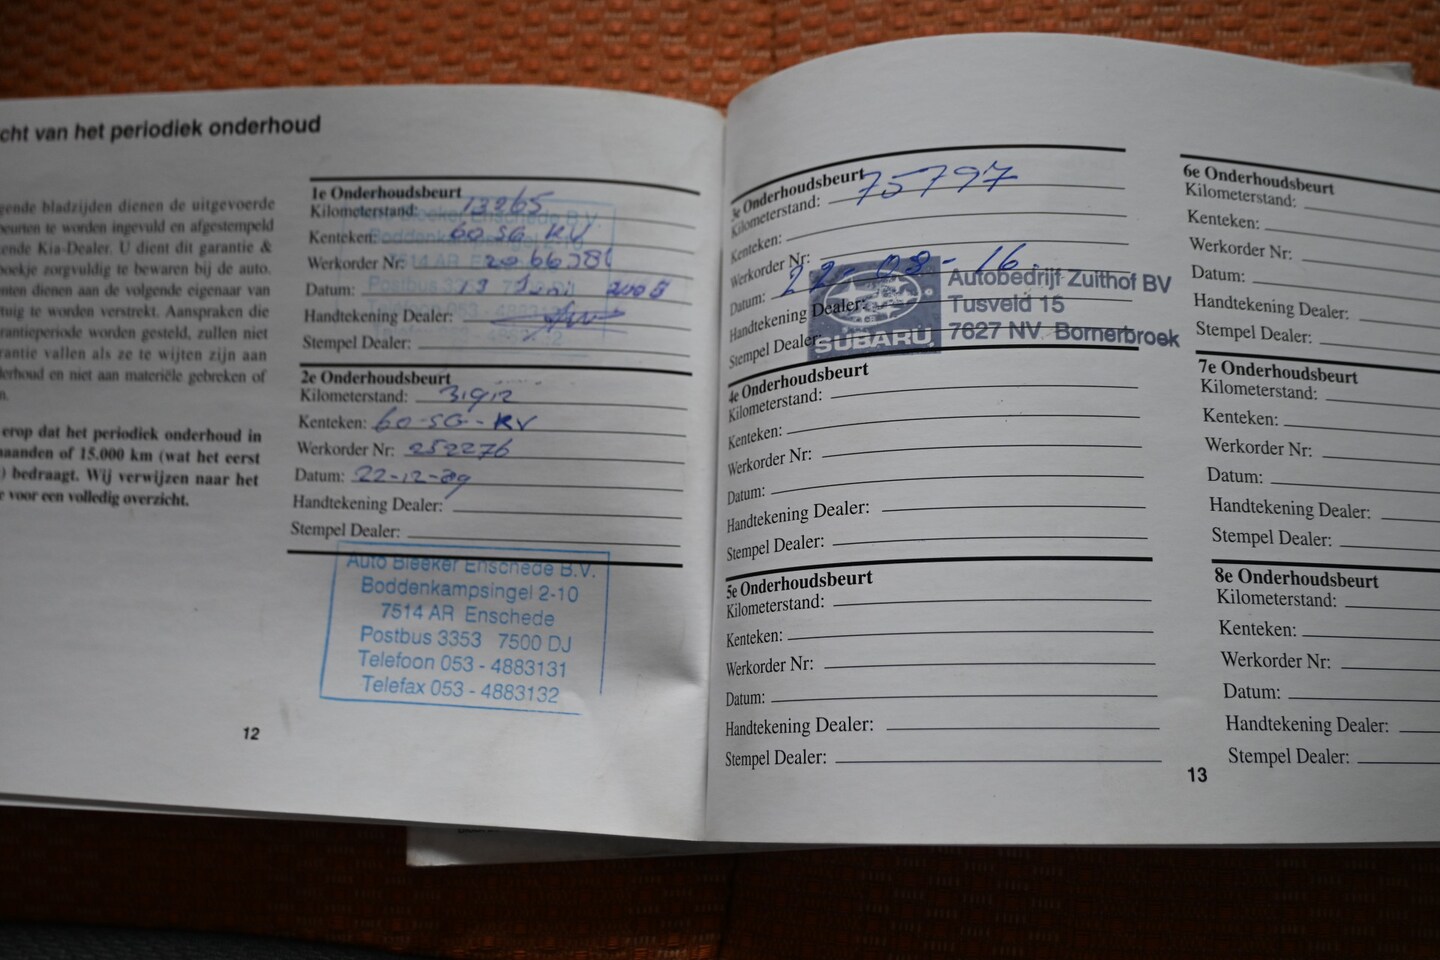 cht van het periodiek onderhoud
gende bladzijden dienen de uitgevoerde
beurten te worden ingevuld en afgestempeld
ende Kia-Dealer. U dient dit garantie &
boekje zorgvuldig te bewaren bij de auto.
nten dienen aan de volgende eigenaar van
tuig te worden verstrekt. Aanspraken die
rantieperiode worden gesteld, zullen niet
rantie vallen als ze te wijten zijn aan
derhoud en niet aan materiële gebreken of
n.
erop dat het periodiek onderhoud in
maanden of 15.000 km (wat het eerst
) bedraagt. Wij verwijzen naar het
voor een volledig overzicht.
1e Onderhoudsbeurt
Kilometerstand: 13265
Kenteken: 60 SG KV
Werkorder Nr:
Datum:
Handtekening Dealer:
Stempel Dealer:
2e Onderhoudsbeurt
Kilometerstand: 31912
Kenteken: 60-SG-KV
Werkorder Nr: 252276
Datum: 22-12-09
Handtekening Dealer:
Stempel Dealer:
Auto Bleeker Enschede B.V.
Boddenkampsingel 2-10
7514 AR Enschede
Postbus 3353 7500 DJ
Telefoon 053 - 4883131
Telefax 053 - 4883132
12
3e Onderhoudsbeurt
Kilometerstand: 75797
Kenteken:
Werkorder Nr:
Datum: 22-08-16.
Handtekening Dealer:
Stempel Dealer:
SUBARU
Autobedrijf Zuithof BV
Tusveld 15
7627 NV Bornerbroek
4e Onderhoudsbeurt
Kilometerstand:
Kenteken:
Werkorder Nr:
Datum:
Handtekening Dealer:
Stempel Dealer:
5e Onderhoudsbeurt
Kilometerstand:
Kenteken:
Werkorder Nr:
Datum:
Handtekening Dealer:
Stempel Dealer:
6e Onderhoudsbeurt
Kilometerstand:
Kenteken:
Werkorder Nr:
Datum:
Handtekening Dealer:
Stempel Dealer:
7e Onderhoudsbeurt
Kilometerstand:
Kenteken:
Werkorder Nr:
Datum:
Handtekening Dealer:
Stempel Dealer:
8e Onderhoudsbeurt
Kilometerstand:
Kenteken:
Werkorder Nr:
Datum:
Handtekening Dealer:
Stempel Dealer:
13